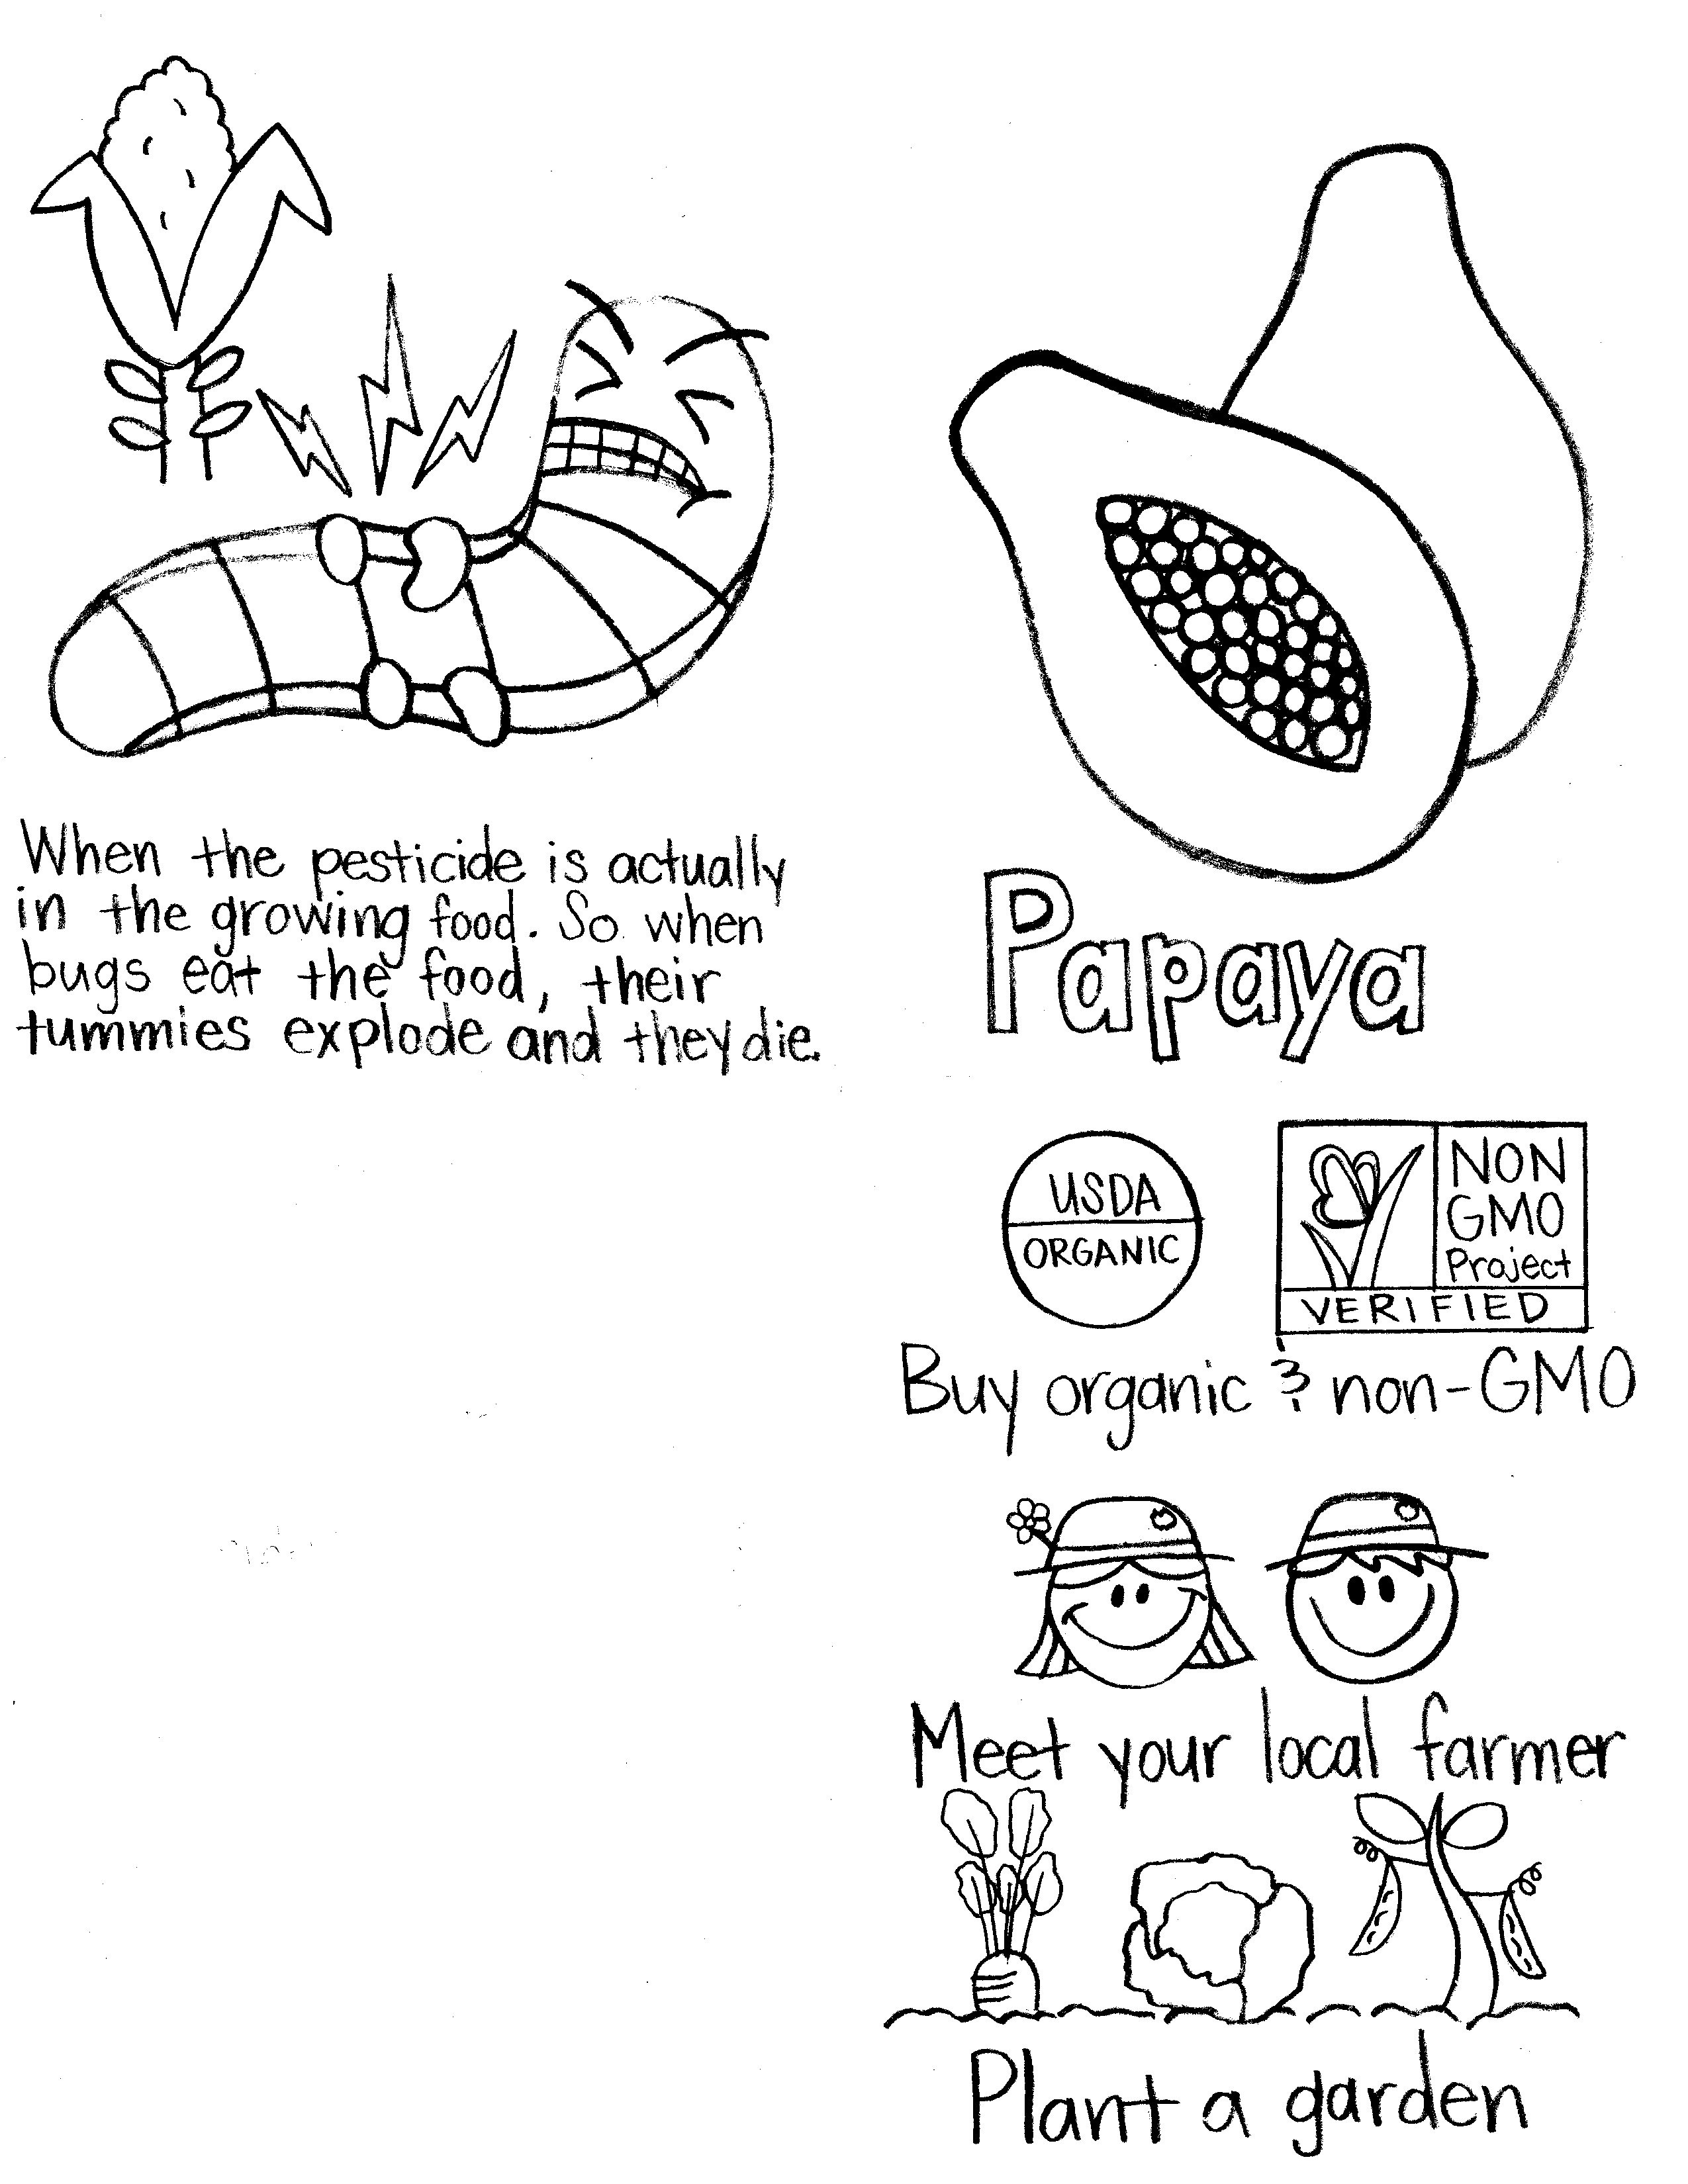 When the pesticide is actually
in the growing food. So when
bugs eat the food, their
tummies explode and they die.
Papaya
USDA
ORGANIC
NON
GMO
Project
VERIFIED
Buy organic & non-GMO
Meet your local farmer
Plant a garden